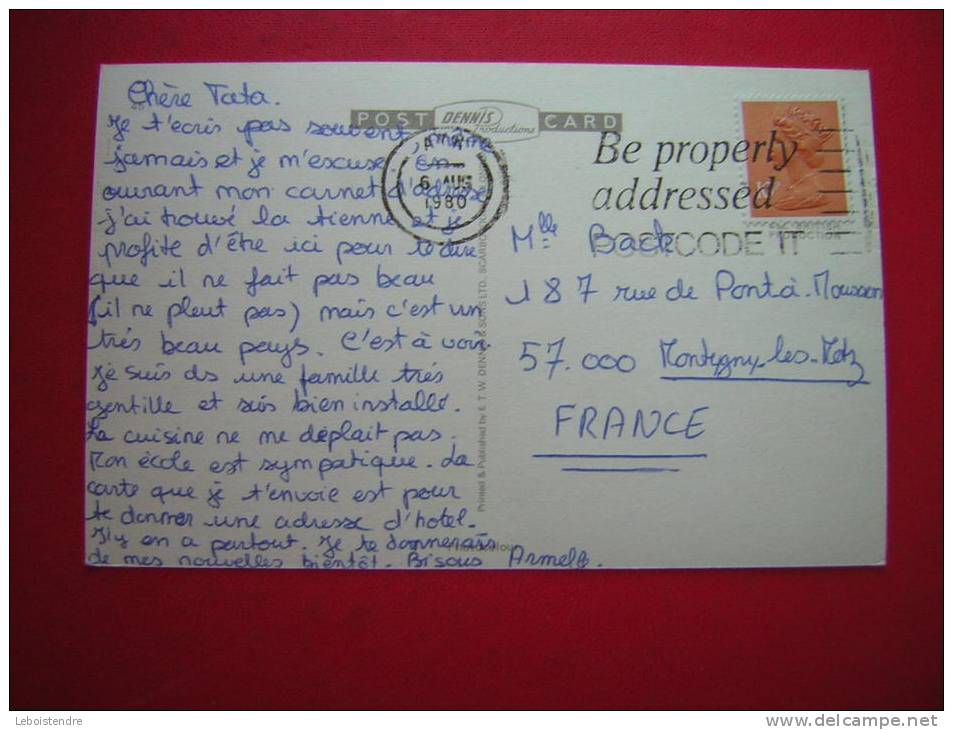 Chère Tata.
Je t'écris pas souvent, même
jamais et je m'excuse. En
ouvrant mon carnet d'adresse
j'ai trouvé la tienne et je
profite d'être ici pour te dire
que il ne fait pas beau
(il ne pleut pas) mais c'est un
très beau pays. C'est à voir.
Je suis ds une famille très
gentille et suis bien installé.
La cuisine ne me déplait pas.
Mon école est sympatique. La
carte que je t'envoie est pour
te donner une adresse d'hotel.
Il y en a partout. Je te donnerais
de mes nouvelles bientôt. Bisous Armelle.
POST DENNIS Productions CARD
6 AUG
1980
Be properly
addressed
POSTCODE IT
Mlle Back
187 rue de Pont à Mousson
57.000 Montigny-les-Metz
FRANCE
Printed & Published by E. T. W. DENNIS & SONS LTD., SCARBOROUGH
Photocolour
Leboistendre
www.delcampe.net